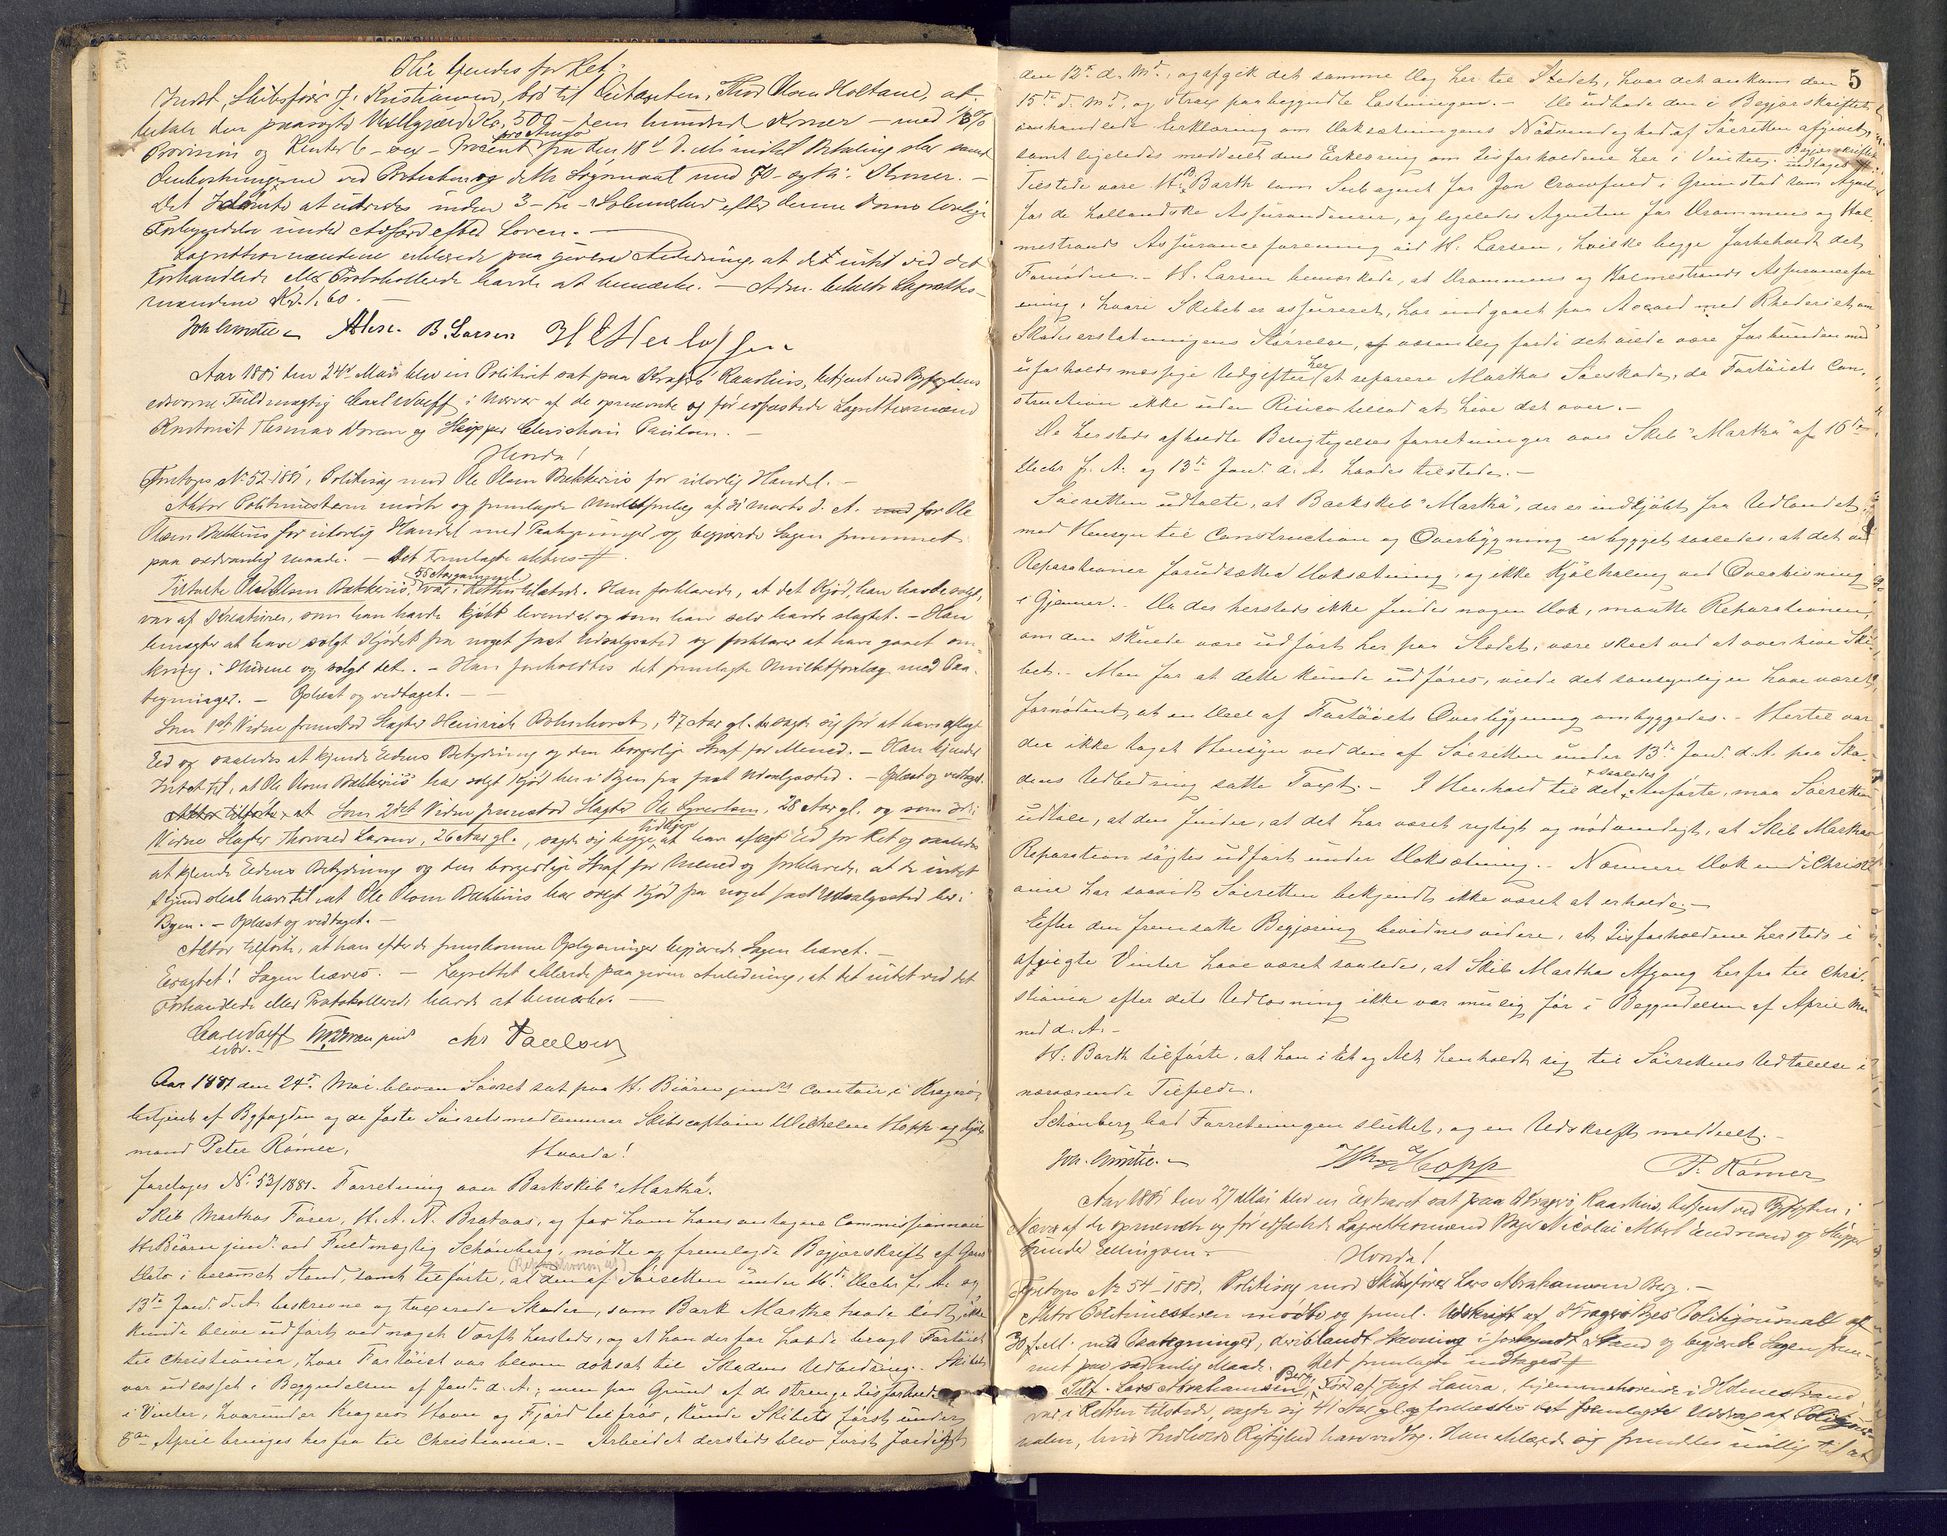 Thi kjendes for Ret:
Indst. Skibsfører J. Kristiansen, bør til Citanten, Thor Olsen Holtane, at
betale den paasøgte Kr. 500 – fem hundred Kroner – med
Provision og Renter 6 – sex – Procent pro Anno fra den 18d d. M. indtil Betaling sker samt
Omkostningerne ved Protesten og dette Søgsmaal med 70 – sytti – Kroner. –
Det Idømte at udredes inden 3 – tre – Solemærker efter denne Doms lovlige
Forkyndelse under Adfærd efter Loven. –
Lagrettesmændene erklærede paa given Anledning, at de intet ved det
Forhandlede eller Protokollerede havde at bemærke. – Adm. betalte Lagrettes-
mændene Kr. 1.60. –
Joh. Christie – B. Larsen
Aar 1881 den 24de Mai blev en Politiret sat paa Kragerø Raadhus, betjent ved Byfogdens
edsvorne Fuldmægtig Carl Wolff i Nærvær af de opnævnte og før edfæstede Lagrettesmænd
Thomas Doran og Skipper Christian Paulsen. –
Hvorda!
Foretoges No 52-1881, Politisag mod Ole Olsen Bakkeriis for ulovlig Handel. –
Aktor Politimesteren mødte og fremlagde Mulktforelæg af 31 Marts d. A. for Ole
Olsen Bakkeriis for ulovlig Handel med Paategninger og begjærede Sagen fremmet
paa sædvanlig Maade. – Det Fremlagte akteres
Tiltalte Ole Olsen Bakkeriis, 55 Aar gammel, var i Retten tilstede. Han forklarede, at det Kjød, han havde solgt,
var af Kreaturer, som han havde kjøbt levende og som han selv havde slagtet. – Han
benægter at have solgt Kjødet fra noget fast Udsalgssted og forklarer at han gaaet om-
kring i Husene og solgt det. – Han foreholdtes det fremlagte Mulktforelæg med Paa-
tegninger. – Oplæst og vedtaget. –
Som 1ste Vidne fremstod Slagter Heinrich Bohnhorst, 47 Aar gl. sagde sig før at have aflagt
Ed og saaledes at kjende Edens Betydning og den borgerlige Straf for Mened. – Han kjender
Intet til, at Ole Olsen Bakkeriis har solgt Kjød her i Byen fra fast Udsalgssted. – Oplæst og vedtaget.
Som 2det Vidne fremstod Slagter Ole Syvertsen, 28 Aar gl. og som 3die
Vidne Slagter Thorvald Larsen, 26 Aar gl., sagde sig begge at have aflagt Ed for Ret og saaledes
at kjende Edens Betydning og den borgerlige Straf for Mened og forklarede, at de intet
Kjendskab har til, at Ole Olsen Bakkeriis har solgt Kjød fra noget fast Udsalgssted her i
Byen. – Oplæst og vedtaget. –
Aktor tilførte, at han efter de fremkomne Oplysninger begjærede Sagen hævet. –
Eragtet! Sagen hæves. – Lagrettet erklærede, paa given Anledning, at det intet ved det
Forhandlede eller Protokollerede havde at bemærke. –
Carl Wolff Chr Paulsen
edsv. –
Aar 1881 den 24de Mai blev en Søret sat paa H. Biørn jun's Contoir i Kragerø,
betjent af Byfogden og de faste Søretsmedlemmer Skibscaptain Wilhelm Hopp og Skibs-
mand Peter Rømer.
Hvorda!
Foretoges No: 53/1881. Forretning over Barkskib "Martha".
Skib Marthas Fører, H. A. N. Brataas, og for ham hans antagne Commissionair
H. Biørn jun. ved Fuldmægtig Schønberg, mødte og fremlagde Begjærskrift af Gaars
Dato i beramet Stand, samt tilførte, at den af Søretten under 16de Decbr f. A. og
13de Janr. d. A. beskrevne og taxerede Skader, som Bark Martha havde lidt, ikke
kunde blive udført ved noget Værft hersteds, og at han derfor havde bragt Fartøiet
til Christiania, hvor Fartøiet var bleven doksat til Skadens Udbedring. Skibet
var udlosset i Begyndelsen af Janr. d. A., men paa Grund af de strenge Iisforholde
i Vinter, hvorunder Kragerø Havn og Fjord tilfrøs, kunde Skibet først under
8de April bringes herfra til Christiania. – Arbeidet dersteds blev først færdigt
5
den 12te d. Mt., og afgik det samme Dag her til Stedet, hvor det ankom den
15de d. Mt. og strax paabegyndte Lastningen. – De udbade den i Begjærskriftet
omhandlede Erklæring om Doksætningens Nødvendighed af Søretten afgivet,
samt ligeledes meddelt dens Erklæring om Iisforholdene her i Vinter. Begjærskriftet modtages
Tilstede vare H. B. Barth som Subagent for Jon Crawfurd i Grimstad som Agent
for de hollandske Assurandeurer, og ligeledes Agenten for Drammens og Hol-
mestrands Assuranceforening ved H. Larsen, hvilke begge forbeholdt det
Fornødne. – H. Larsen bemærkede, at Drammens og Holmestrands Assurancefor-
ening, hvori Skibet er assureret, har indgaaet paa Accord med Rhederiet om
Skadeserstatningens Størrelse, nemlig fordi det vilde være forbunden med
uforholdsmæssige Udgifter her at reparere Marthas Søskade, da Fartøiets Con-
struction ikke uden Risico tillod at hive det over. –
De hersteds afholdte Besigtigelsesforretninger over Skib "Martha" af 16de
Decbr f. A. og 13de Janr d. A. havdes tilstede. –
Søretten udtalte, at Barkskib "Martha", der er indkjøbt fra Udlandet,
med Hensyn til Construction og Overbygning er bygget saaledes, at det ved
Reparationer forudsætter Doksætning, og ikke Kjølhaling ved Overhivning
. – Da der hersteds ikke findes nogen Dok, maatte Reparationen,
om den skulde være udført her paa Stedet, være skeet ved at overhive Ski-
bet. – Men for at dette kunde udføres, vilde det sandsynligen have været
fornødent, at en Deel af Fartøiets Overbygning ombyggedes. – Hertil var
der ikke taget Hensyn ved den af Søretten under 13de Janr. d. A. paa Ska-
dens Udbedring satte Taxt. – I Henhold til det saaledes Anførte, maa Søretten
udtale, at den finder, at det har været rigtigt og nødvendigt, at Skib Marthas
Reparation søgtes udført under Doksætning. – Nærmere Dok end i Christi-
ania har saavidt Søretten bekjendt ikke været at erholde. –
Efter den fremsatte Begjæring bevidnes videre, at Iisforholdene hersteds i
afvigte Vinter have været saaledes, at Skib Marthas Afgang herfra til Chri-
stiania efter dets Udlosning ikke var mulig før i Begyndelsen af April Maa-
ned d. A. –
H. Barth tilførte, at han i Et og Alt henholdt sig til Sørettens Udtalelse i
nærværende Tilfælde.
Schønberg bad Forretningen sluttet, og en Udskrift meddelt. –
Joh. Christie. – Wm Hopp P. Rømer
Aar 1881 den 27 Mai blev en Extraret sat paa Kragerø Raadhus, betjent ved Byfogden i
Nærvær af de opnævnte og før edfæstede Lagrettesmænd Bager Nicolai Albert og Skipper
Ellingsen. –
Hvorda!
Foretoges No 54-1881. Politisag mod Skibsfører Lars Abrahamsen Berg. –
Aktor Politimesteren mødte og freml. Udskrift af Kragerø Byes Politijournal af
30 f. M. med Paategninger, deriblandt Stævning i forkyndt Stand og begjærede Sagen frem-
met paa sædvanlig Maade. Det fremlagte modtages
Tilt. Lars Abrahamsen Berg, Fører af Jagt Laura, hjemmehørende i Holmestrand
var i Retten tilstede, sagde sig 41 Aar gl. og forelæstes det fremlagte Uddrag af Politijour-
nalen, hvis Indholds Rigtighed han vedtog. Han erklærede sig fremdeles uvillig til at